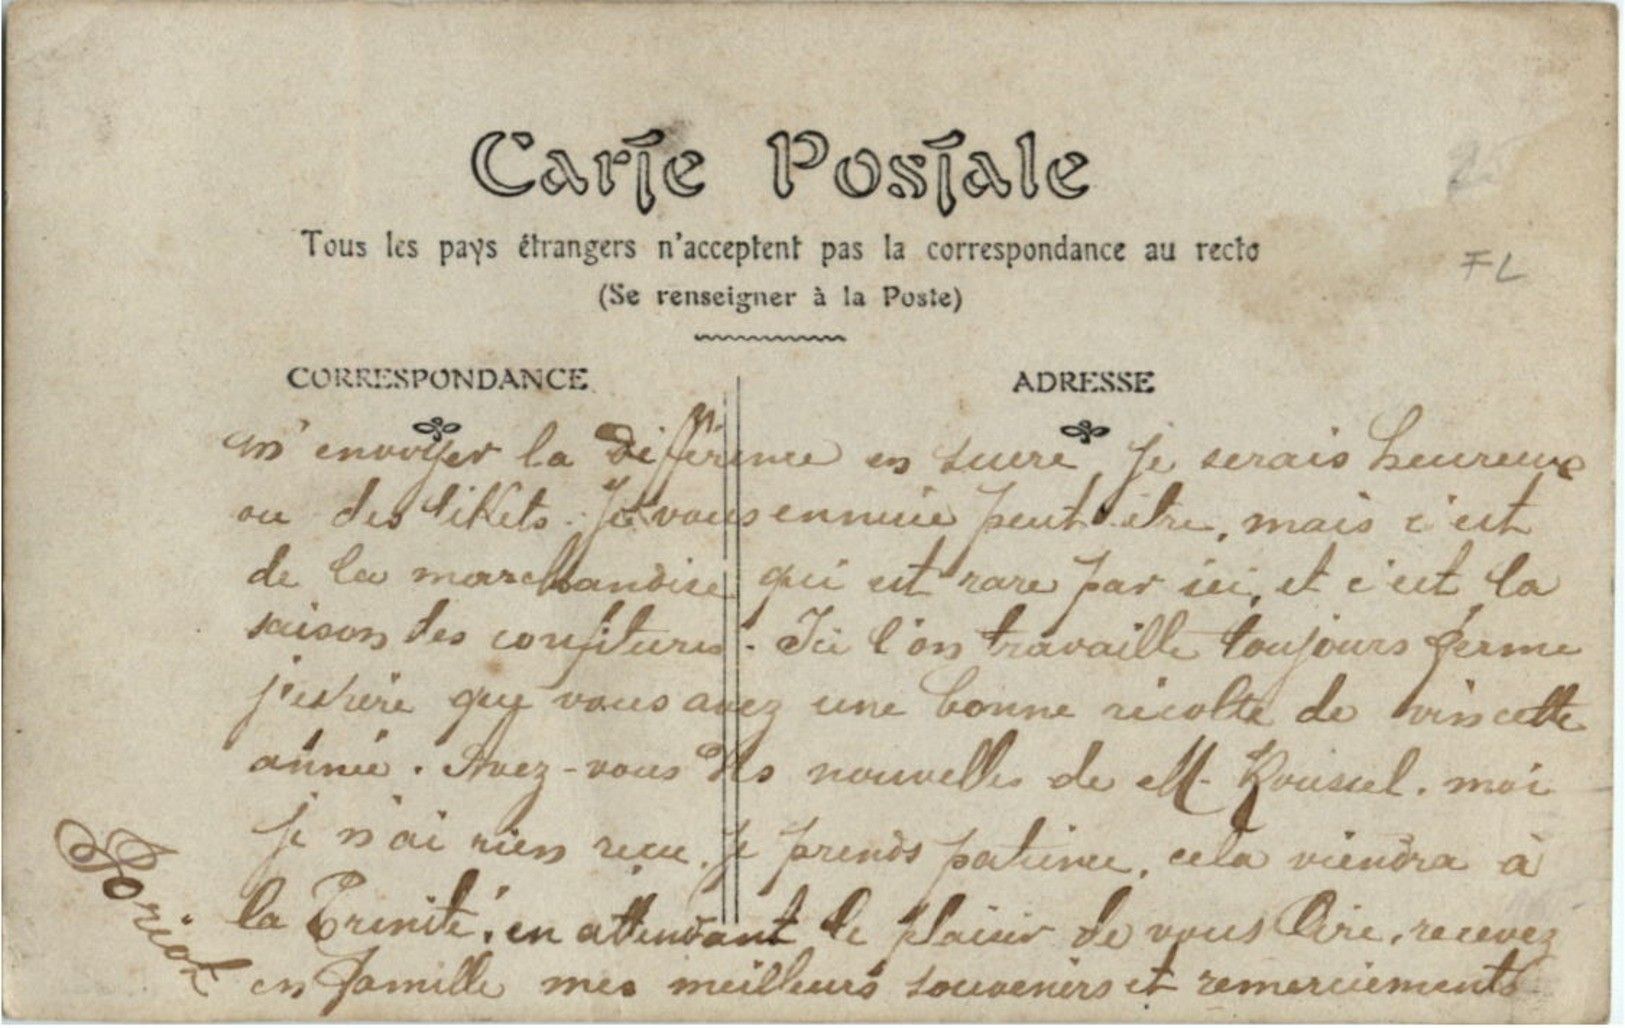 Carte Postale
Tous les pays étrangers n'acceptent pas la correspondance au recto
(Se renseigner à la Poste)
CORRESPONDANCE
ADRESSE
FL
m'envoyer la difference en sucre, je serais heureux
ou des tikets. Je vous ennuie peut être, mais c'est
de la marchandise qui est rare par ici, et c'est la
saison des confitures. Ici l'on travaille toujours ferme
j'espère que vous avez une bonne récolte de vin cette
année. Avez-vous des nouvelles de M. Roussel. moi
je n'ai rien recu. je prends patience, cela viendra à
la Trinité, en attendant le plaisir de vous lire, recevez
en famille mes meilleurs souvenirs et remerciements